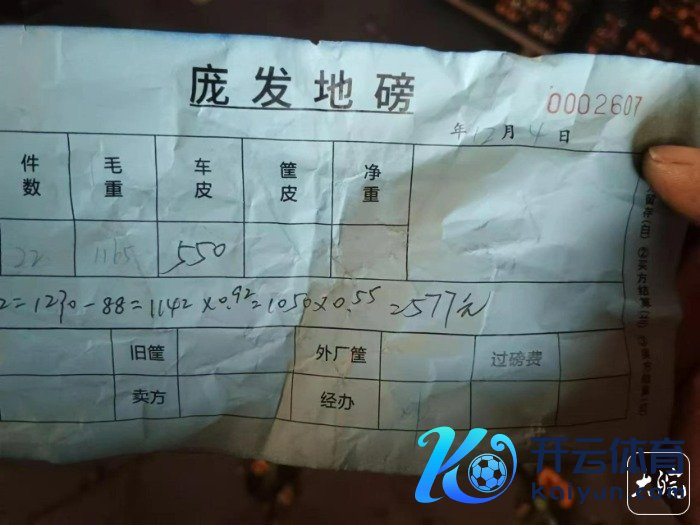 庞发地磅
0002607
年12月4日
件数 毛重 车皮 筐皮 净重
22 1165 550
2=1230-88=1142×0.92=1050×0.55=577元
旧筐 外厂筐 过磅费
卖方 经办
②买方结算
开云体育
Kaiyun.com
大皖